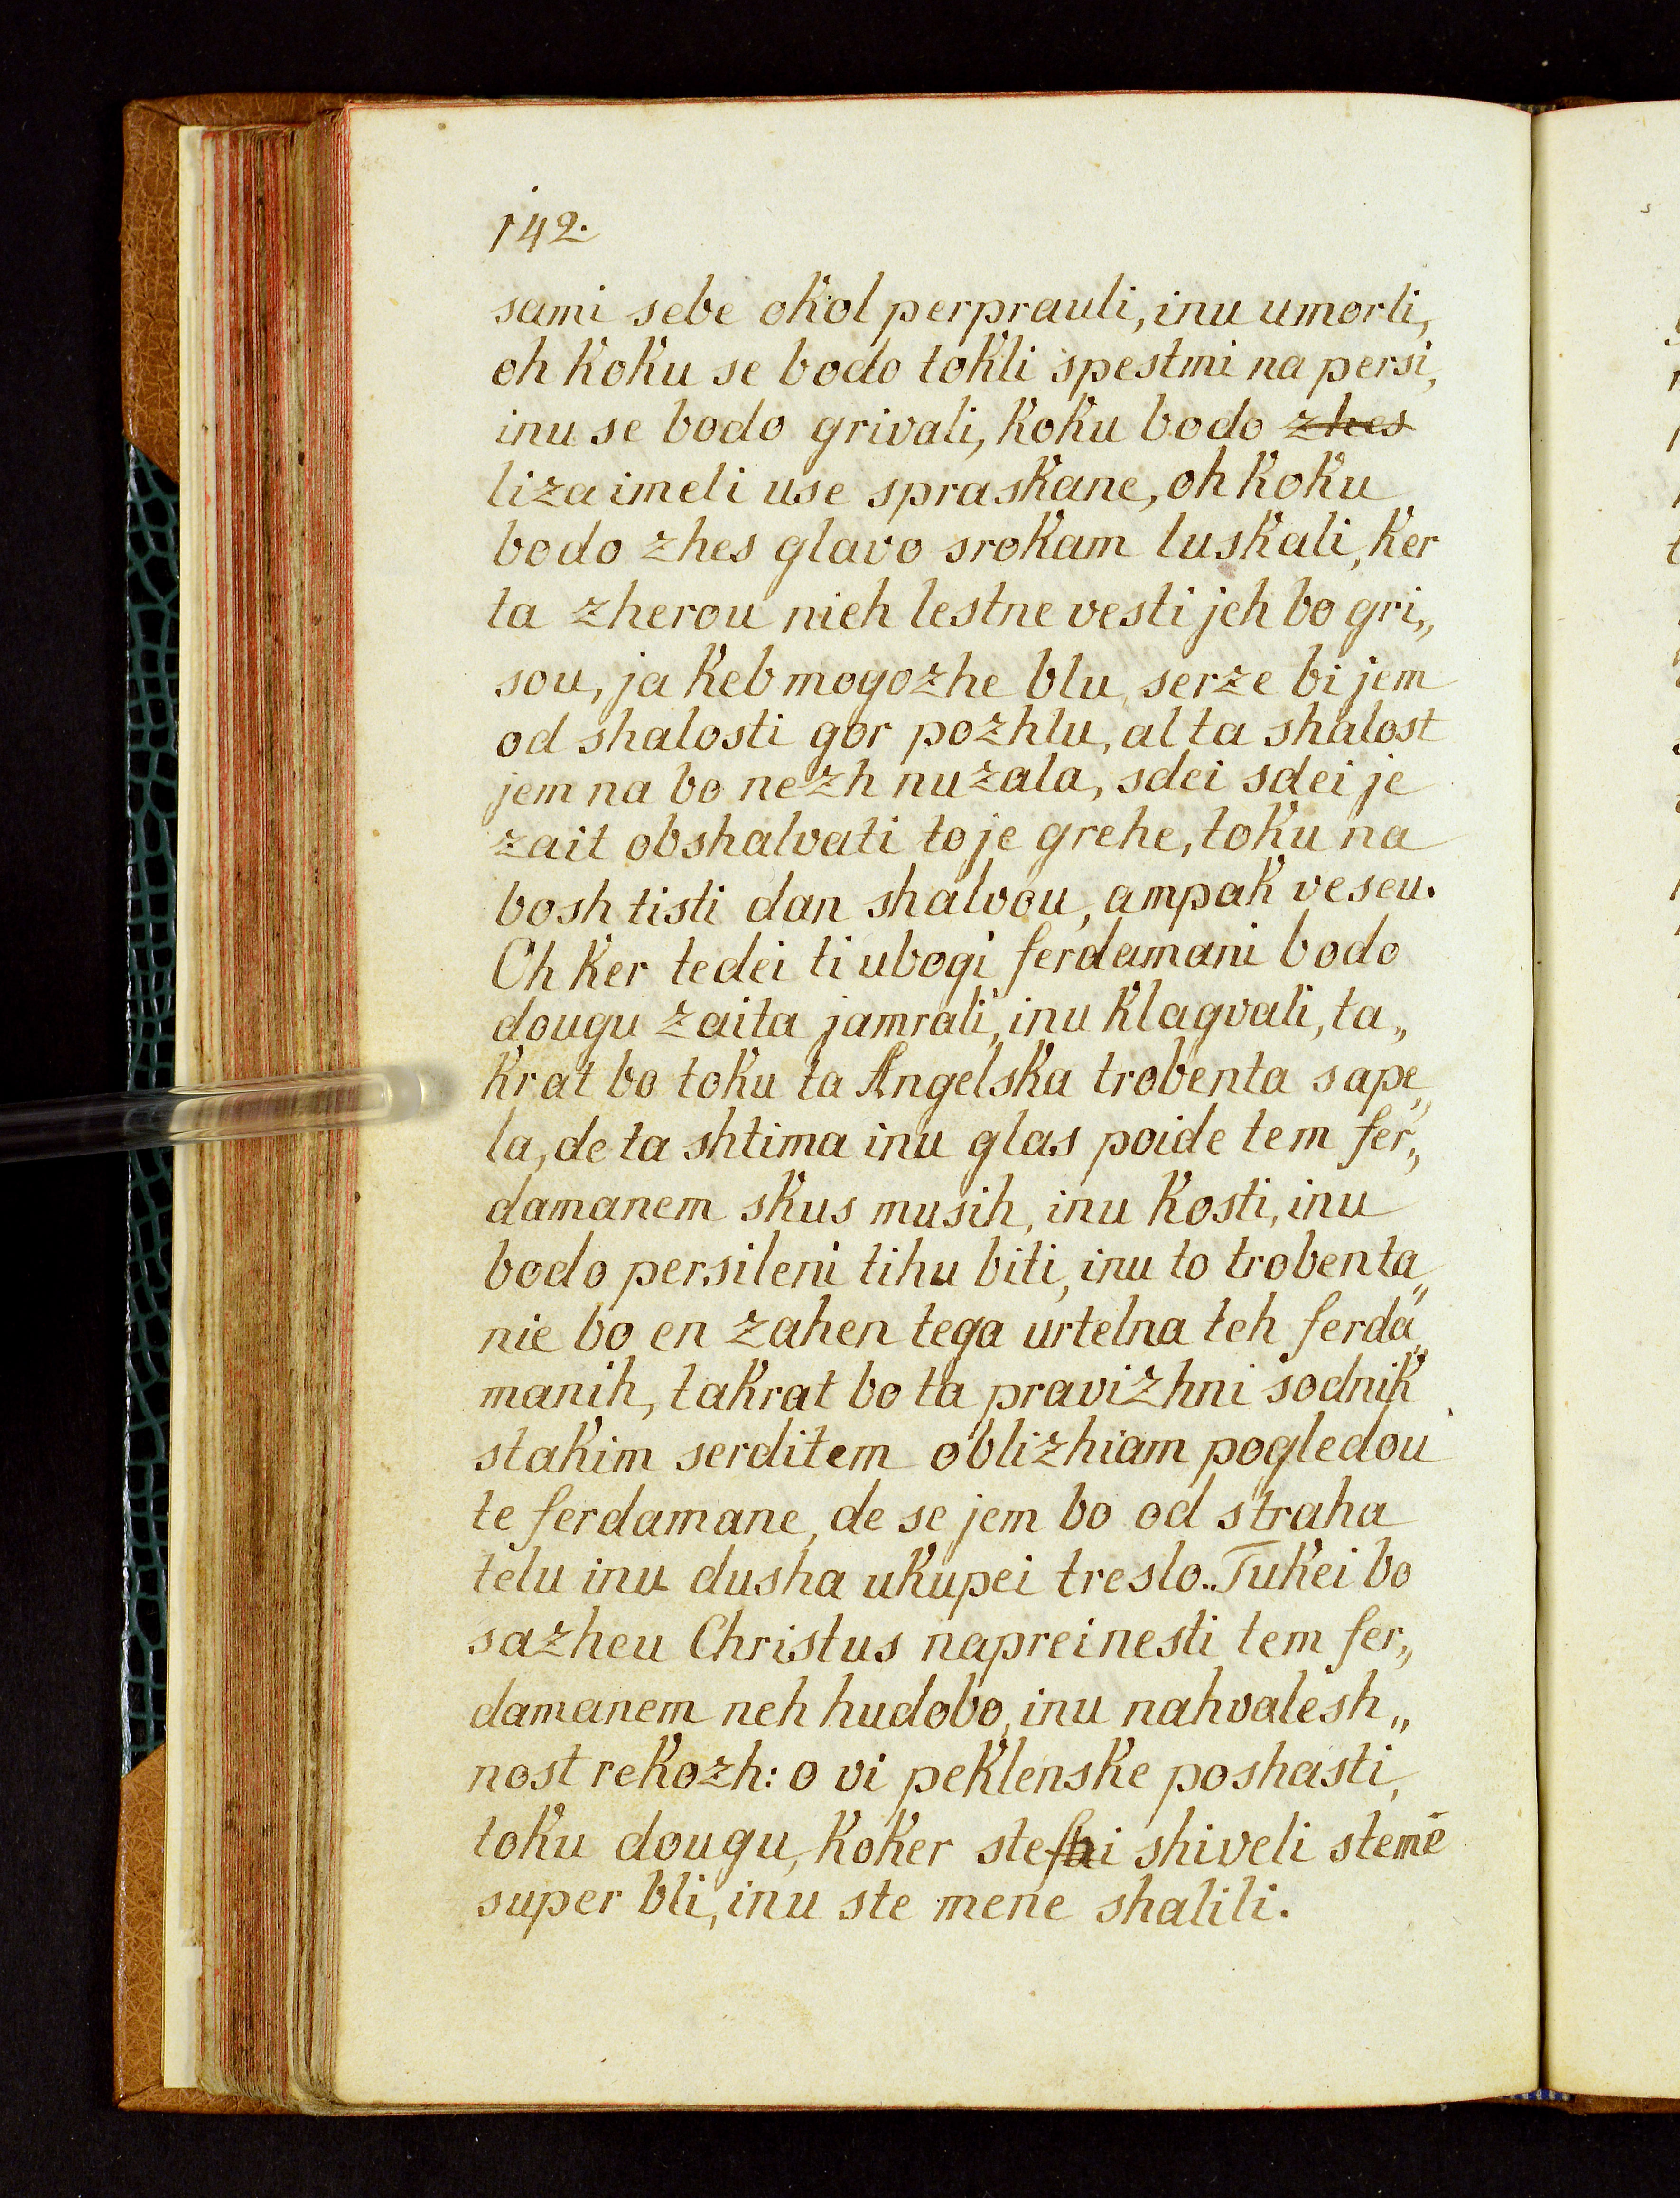 142.
sami sebe okol perprauli, inu umorli,
oh koku se bodo tokli spestmi na persi,
inu se bodo grivali, koku bodo zhes
liza imeli use spraskane, oh koku
bodo zhes glavo srokam luskali, ker
ta zherou nieh lestne vesti jeh bo gri„
sou, ja keb mogozhe blu, serze bi jem
od shalosti gor pozhlu, al ta shalost
jem na bo nezh nuzala, sdei sdei je
zait obshalvati toje grehe, toku na
bosh tisti dan shalvou, ampak veseu.
Oh ker tedei ti ubogi ferdamani bodo
dougu zaita jamrali, inu klagvali, ta„
krat bo toku ta Angelska trobenta sape„
la, de ta shtima inu glas poide tem fer„
damanem skus musih, inu kosti, inu
bodo persileni tihu biti, inu to trobenta„
nie bo en zahen tega urtelna teh ferda„
manih, takrat bo ta pravizhni sodnik
stakim serditem oblizhiam pogledou
te ferdamane, de se jem bo od straha
telu inu dusha ukupei treslo. Tukei bo
sazheu Christus naprei nesti tem fer„
damanem neh hudobo, inu nahvalesh„
nost rekozh: o vi peklenske poshasti,
toku dougu, koker ste shiveli ste mē
super bli, inu ste mene shalili.